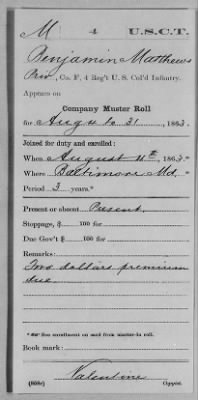 M 4 U.S.C.T.
Benjamin Matthews
Priv, Co. F, 4 Reg't U. S. Col'd Infantry.
Appears on
Company Muster Roll
for Aug 4 to 31, 1863.
Joined for duty and enrolled:
When August 4th, 1863.*
Where Baltimore Md. *
Period 3 years.*
Present or absent Present.
Stoppage, $ 100 for
Due Gov't $ 100 for
Remarks:
Two dollars premium
due.
* See enrollment on card from muster-in roll.
Book mark:
Valentine
(858c) Copyist.